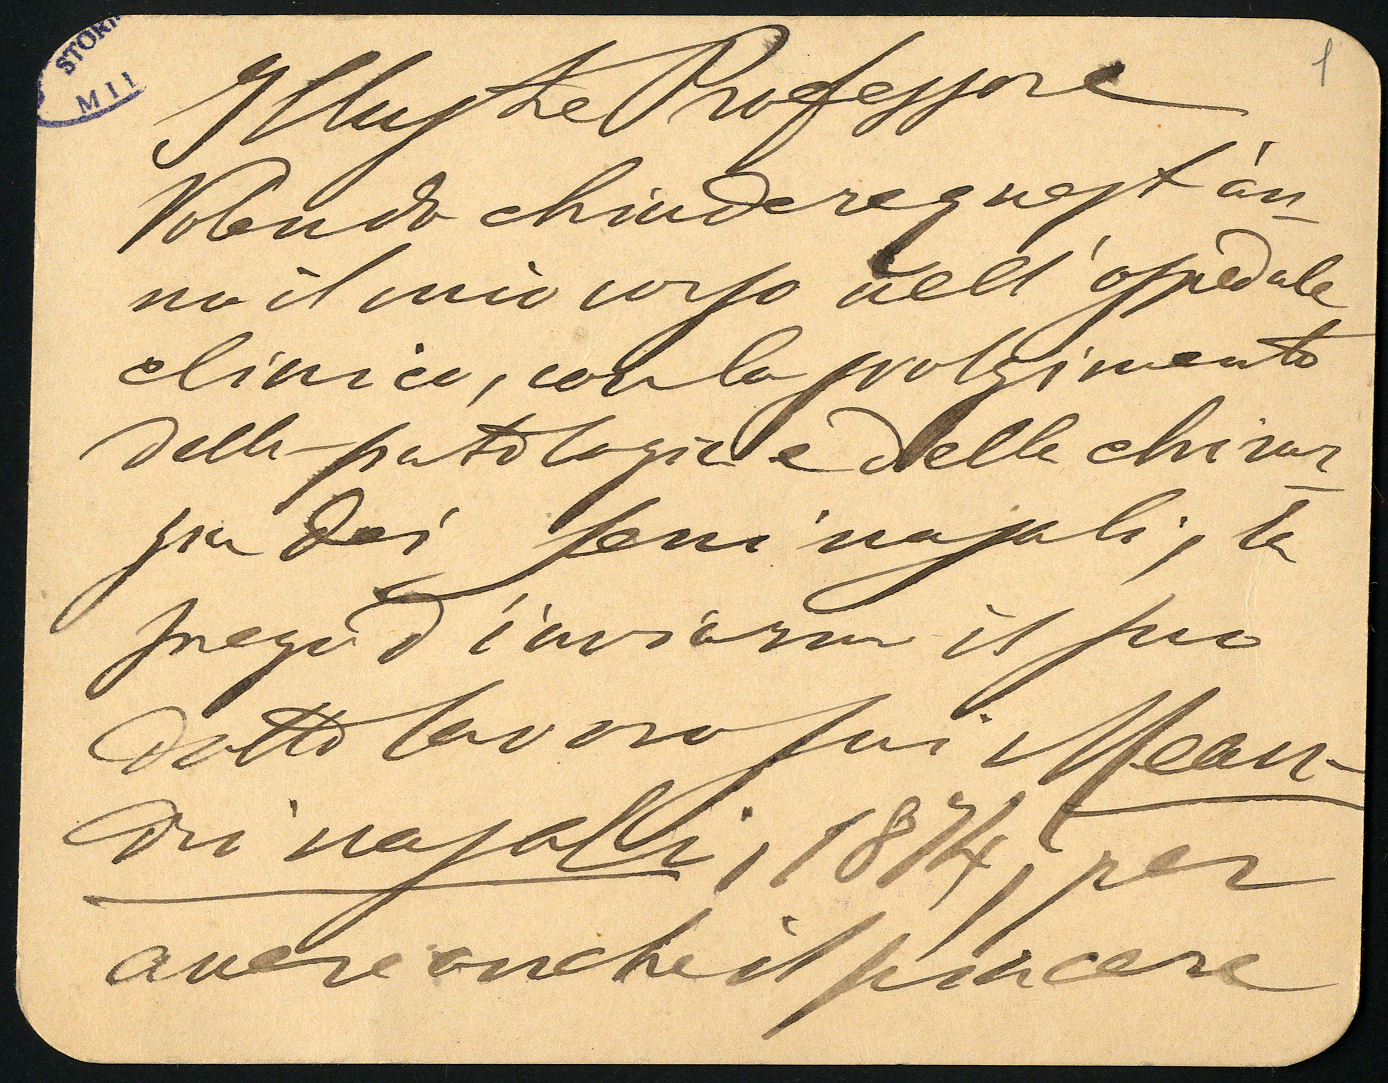 STOR
MIL
1
Illustre Professore
Volendo chiudere quest'an-
no il mio corso nell'ospedale
clinico, con lo svolgimento
della patologia e della chirur-
gia dei seni nasali, la
prego d'inviarmi il suo
dotto lavoro sui Mean-
dri nasali, 1874, per
avere anche il piacere